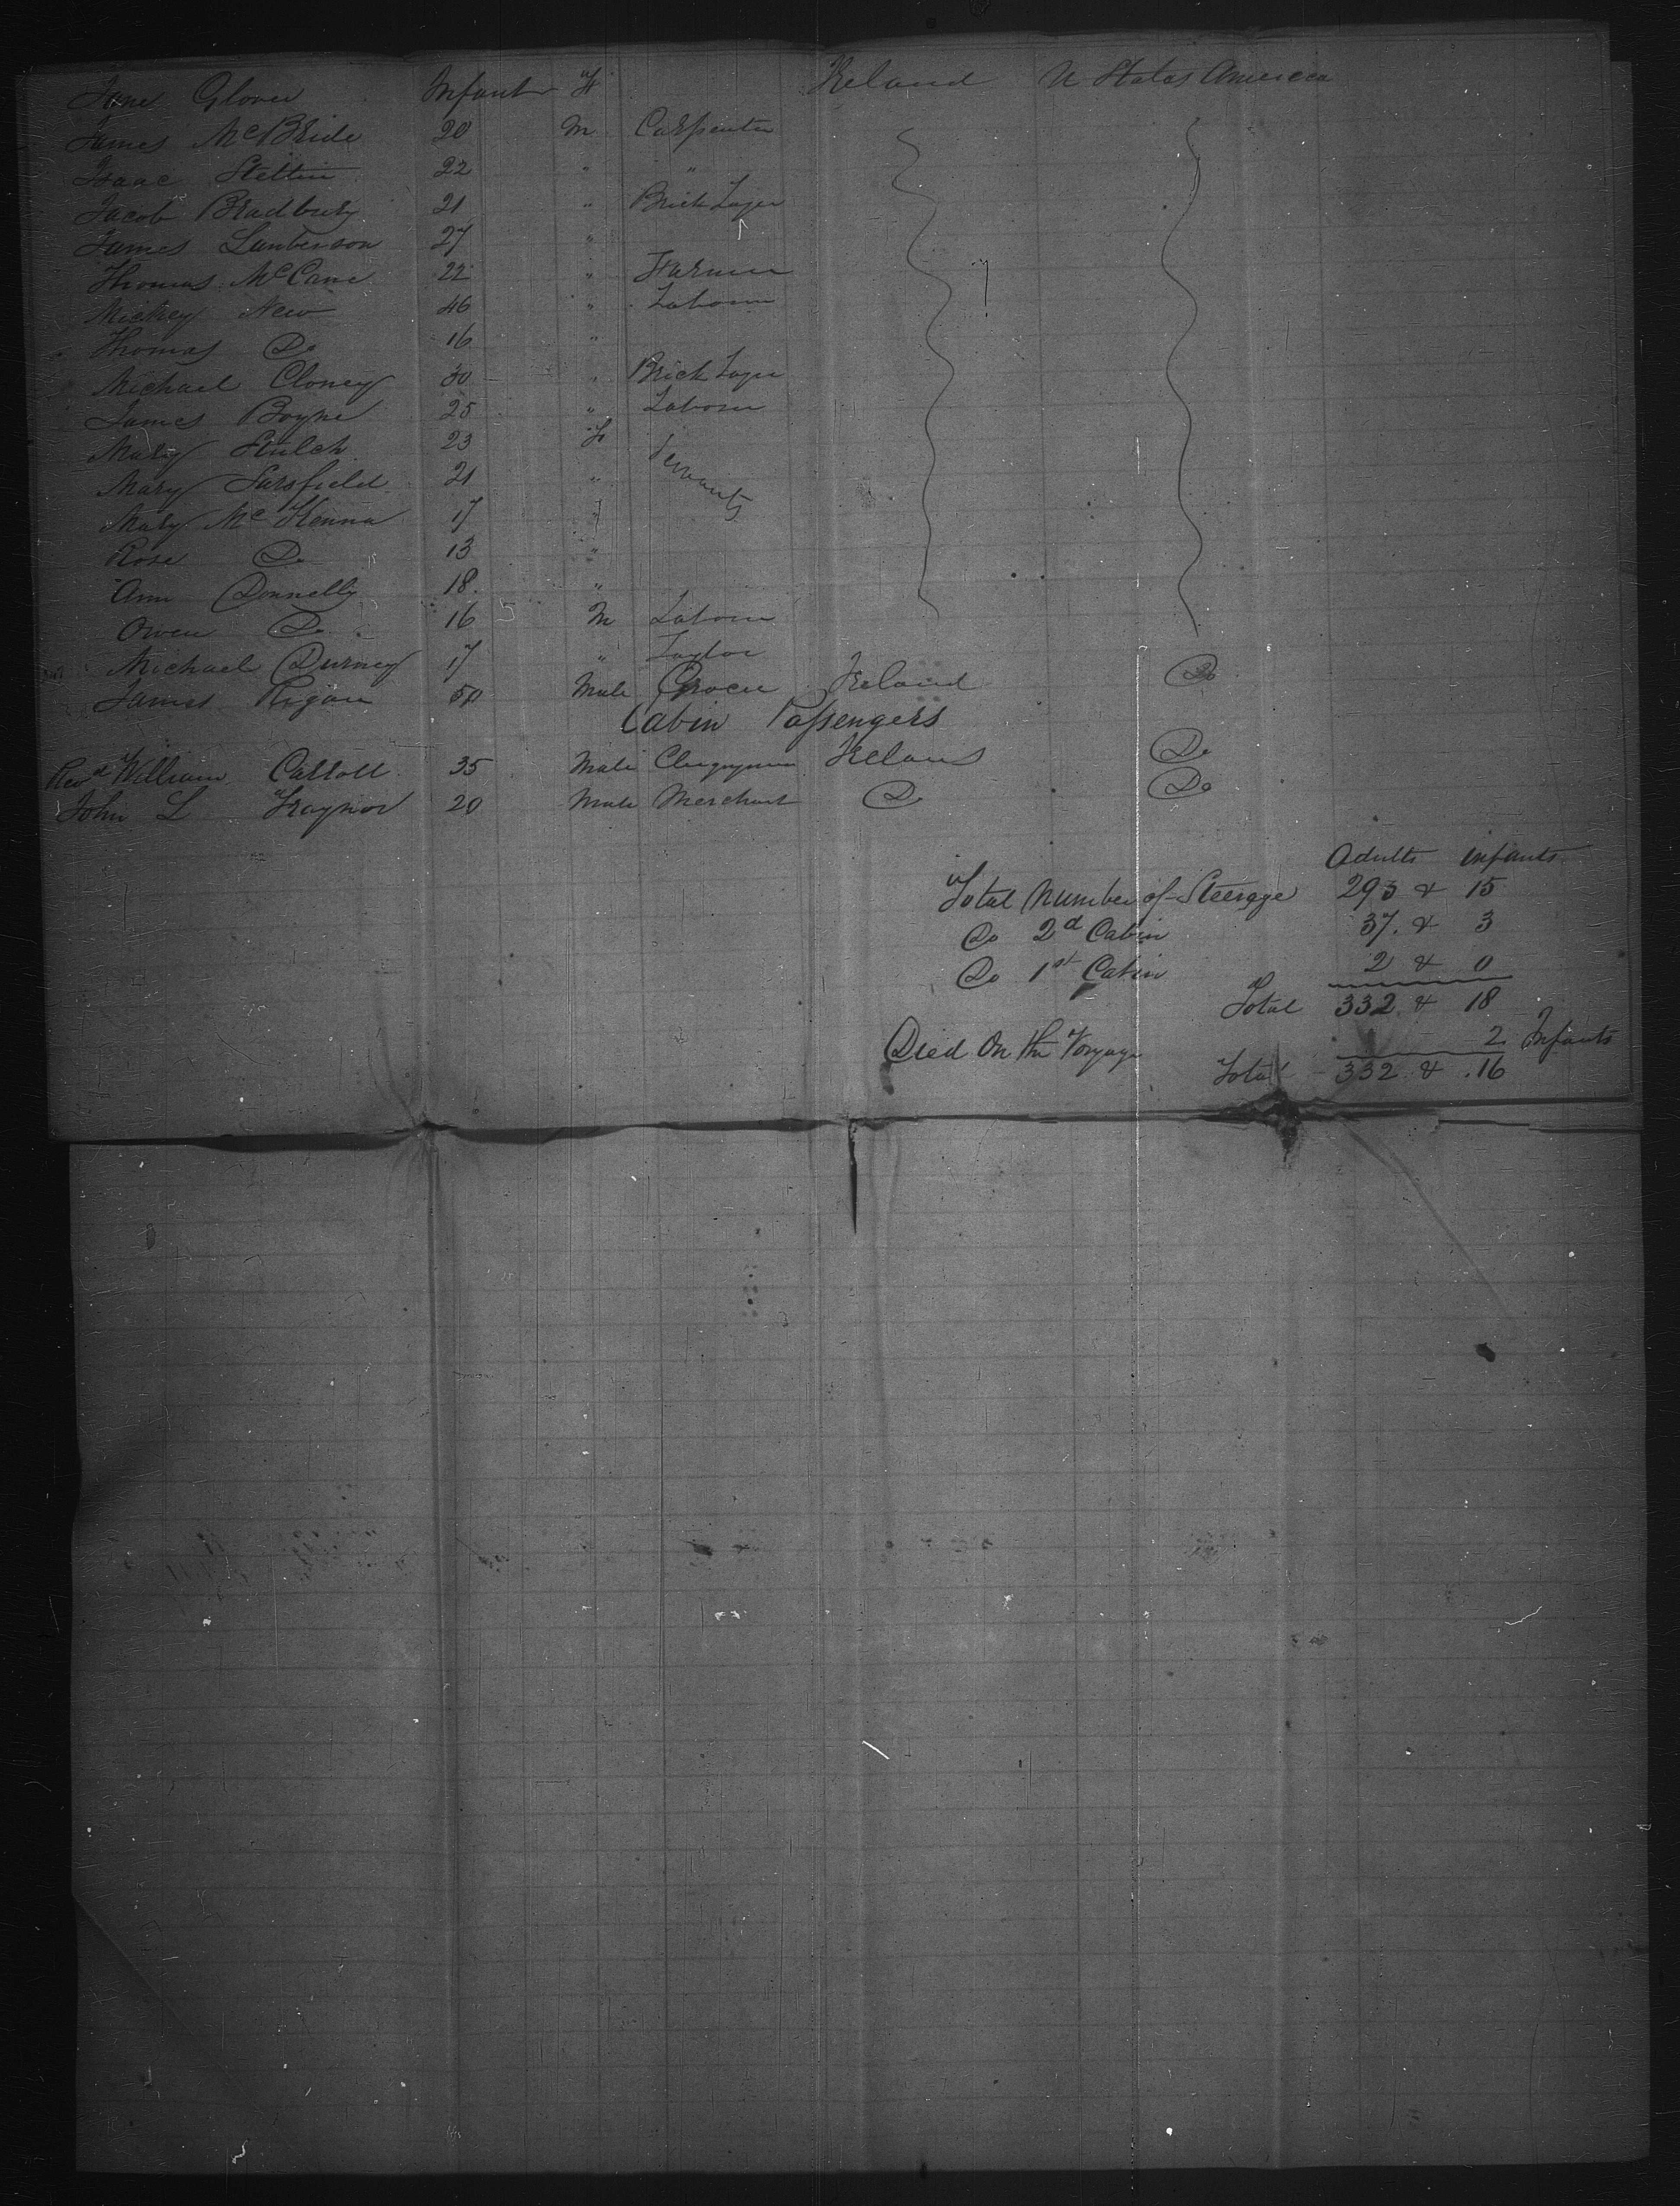 Jane Glover Infant F Ireland U States America
James McBride 20 M Carpenter
Isaac Stettin 22 " "
Jacob Bradbury 21 " Brick Layer
James Lamberson 27 "
Thomas McCane 22 " Farmer
Mickey New 46 " Laborer
Thomas Do 16 "
Michael Cloney 30 " Brick Layer
James Boyne 25 " Laborer
Mary 23 F Servants
Mary Sarsfield 21 "
Mary McKenna 17 "
Rose Do 13 "
Ann Donnelly 18 "
Owen Do 16 M Laborer
Michael Durney 17 " Taylor
James Rigan 50 Male Grocer Ireland Do
Cabin Passengers
Revd William Carroll 35 Male Clergyman Ireland Do
John L Traynor 20 Male Merchant Do Do
Adults infants
Total Number of Steerage 293 & 15
Do 2d Cabin 37 & 3
Do 1st Cabin 2 & 0
Total 332 & 18
Died On the Voyage 2 Infants
Total 332 & 16